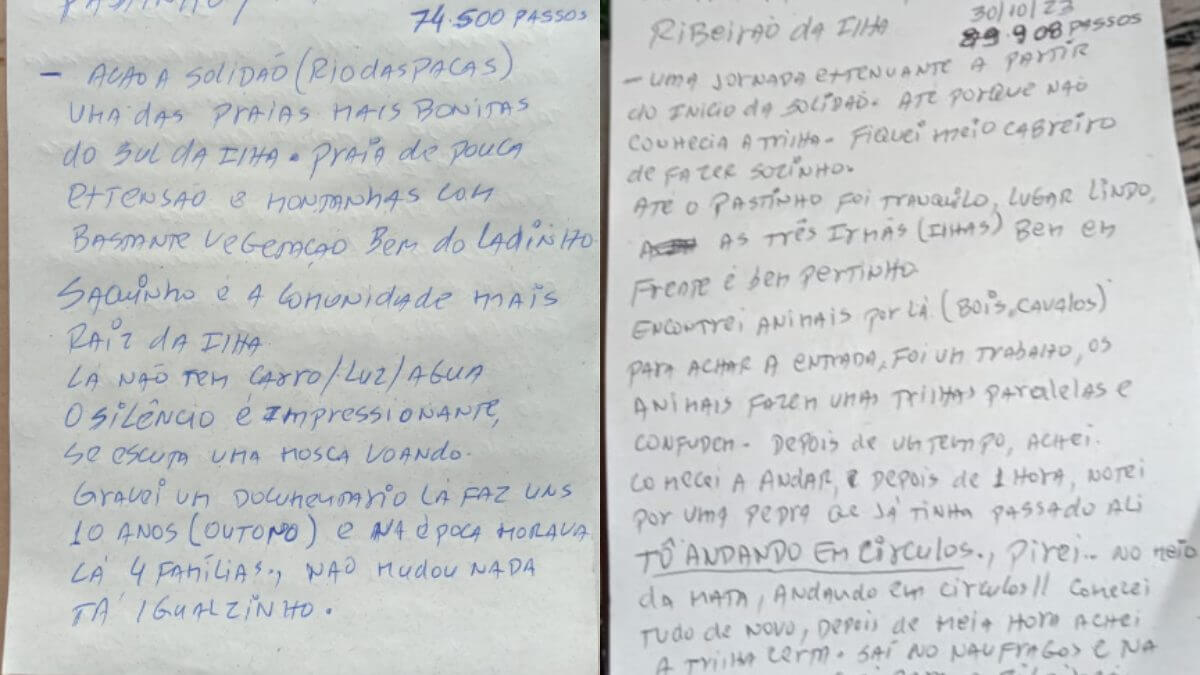 PASTINHO/
74.500 PASSOS
- ACAO A SOLIDÃO (RIO DAS PACAS)
UMA DAS PRAIAS MAIS BONITAS
do SUL DA ILHA. PRAIA de POUCA
EXTENSÃO e MONTANHAS COM
BASTANTE VEGETAÇÃO BEM do LADINHO
SAQUINHO É A COMUNIDADE MAIS
RAIZ DA ILHA
LÁ NÃO TEM CARRO/LUZ/AGUA
O SILÊNCIO É IMPRESSIONANTE,
SE ESCUTA UMA MOSCA VOANDO.
GRAVEI UM DOCUMENTARIO LÁ FAZ UNS
10 ANOS (OUTONO) E NA ÉPOCA MORAVA
LÁ 4 FAMÍLIAS., NÃO MUDOU NADA
TÁ IGUALZINHO.
30/10/23
RIBEIRÃO DA ILHA
89.908 PASSOS
- UMA JORNADA EXTENUANTE A PARTIR
do INICIO DA SOLIDÃO. ATÉ PORQUE NÃO
CONHECIA A TRILHA. FIQUEI MEIO CABREIRO
de FAZER SOZINHO.
ATÉ O PASTINHO FOI TRANQUILO, LUGAR LINDO,
AS TRÊS IRMÃS (ILHAS) BEM EM
FRENTE É BEM PERTINHO
ENCONTREI ANIMAIS POR LÁ (BOIS, CAVALOS)
PARA ACHAR A ENTRADA, FOI UM TRABALHO, OS
ANIMAIS FAZEM UMAS TRILHAS PARALELAS E
CONFUDEM. DEPOIS DE UM TEMPO, ACHEI.
COMECEI A ANDAR, E DEPOIS DE 1 HORA, NOTEI
POR UMA PEDRA QE JÁ TINHA PASSADO ALI
TÔ ANDANDO EM CÍRCULOS., PIREI.. NO MEIO
DA MATA, ANDANDO EM CIRCULOS!! COMECEI
TUDO DE NOVO, DEPOIS DE MEIA HORA ACHEI
A TRILHA CERTA. SAÍ NO NAUFRAGOS E NA